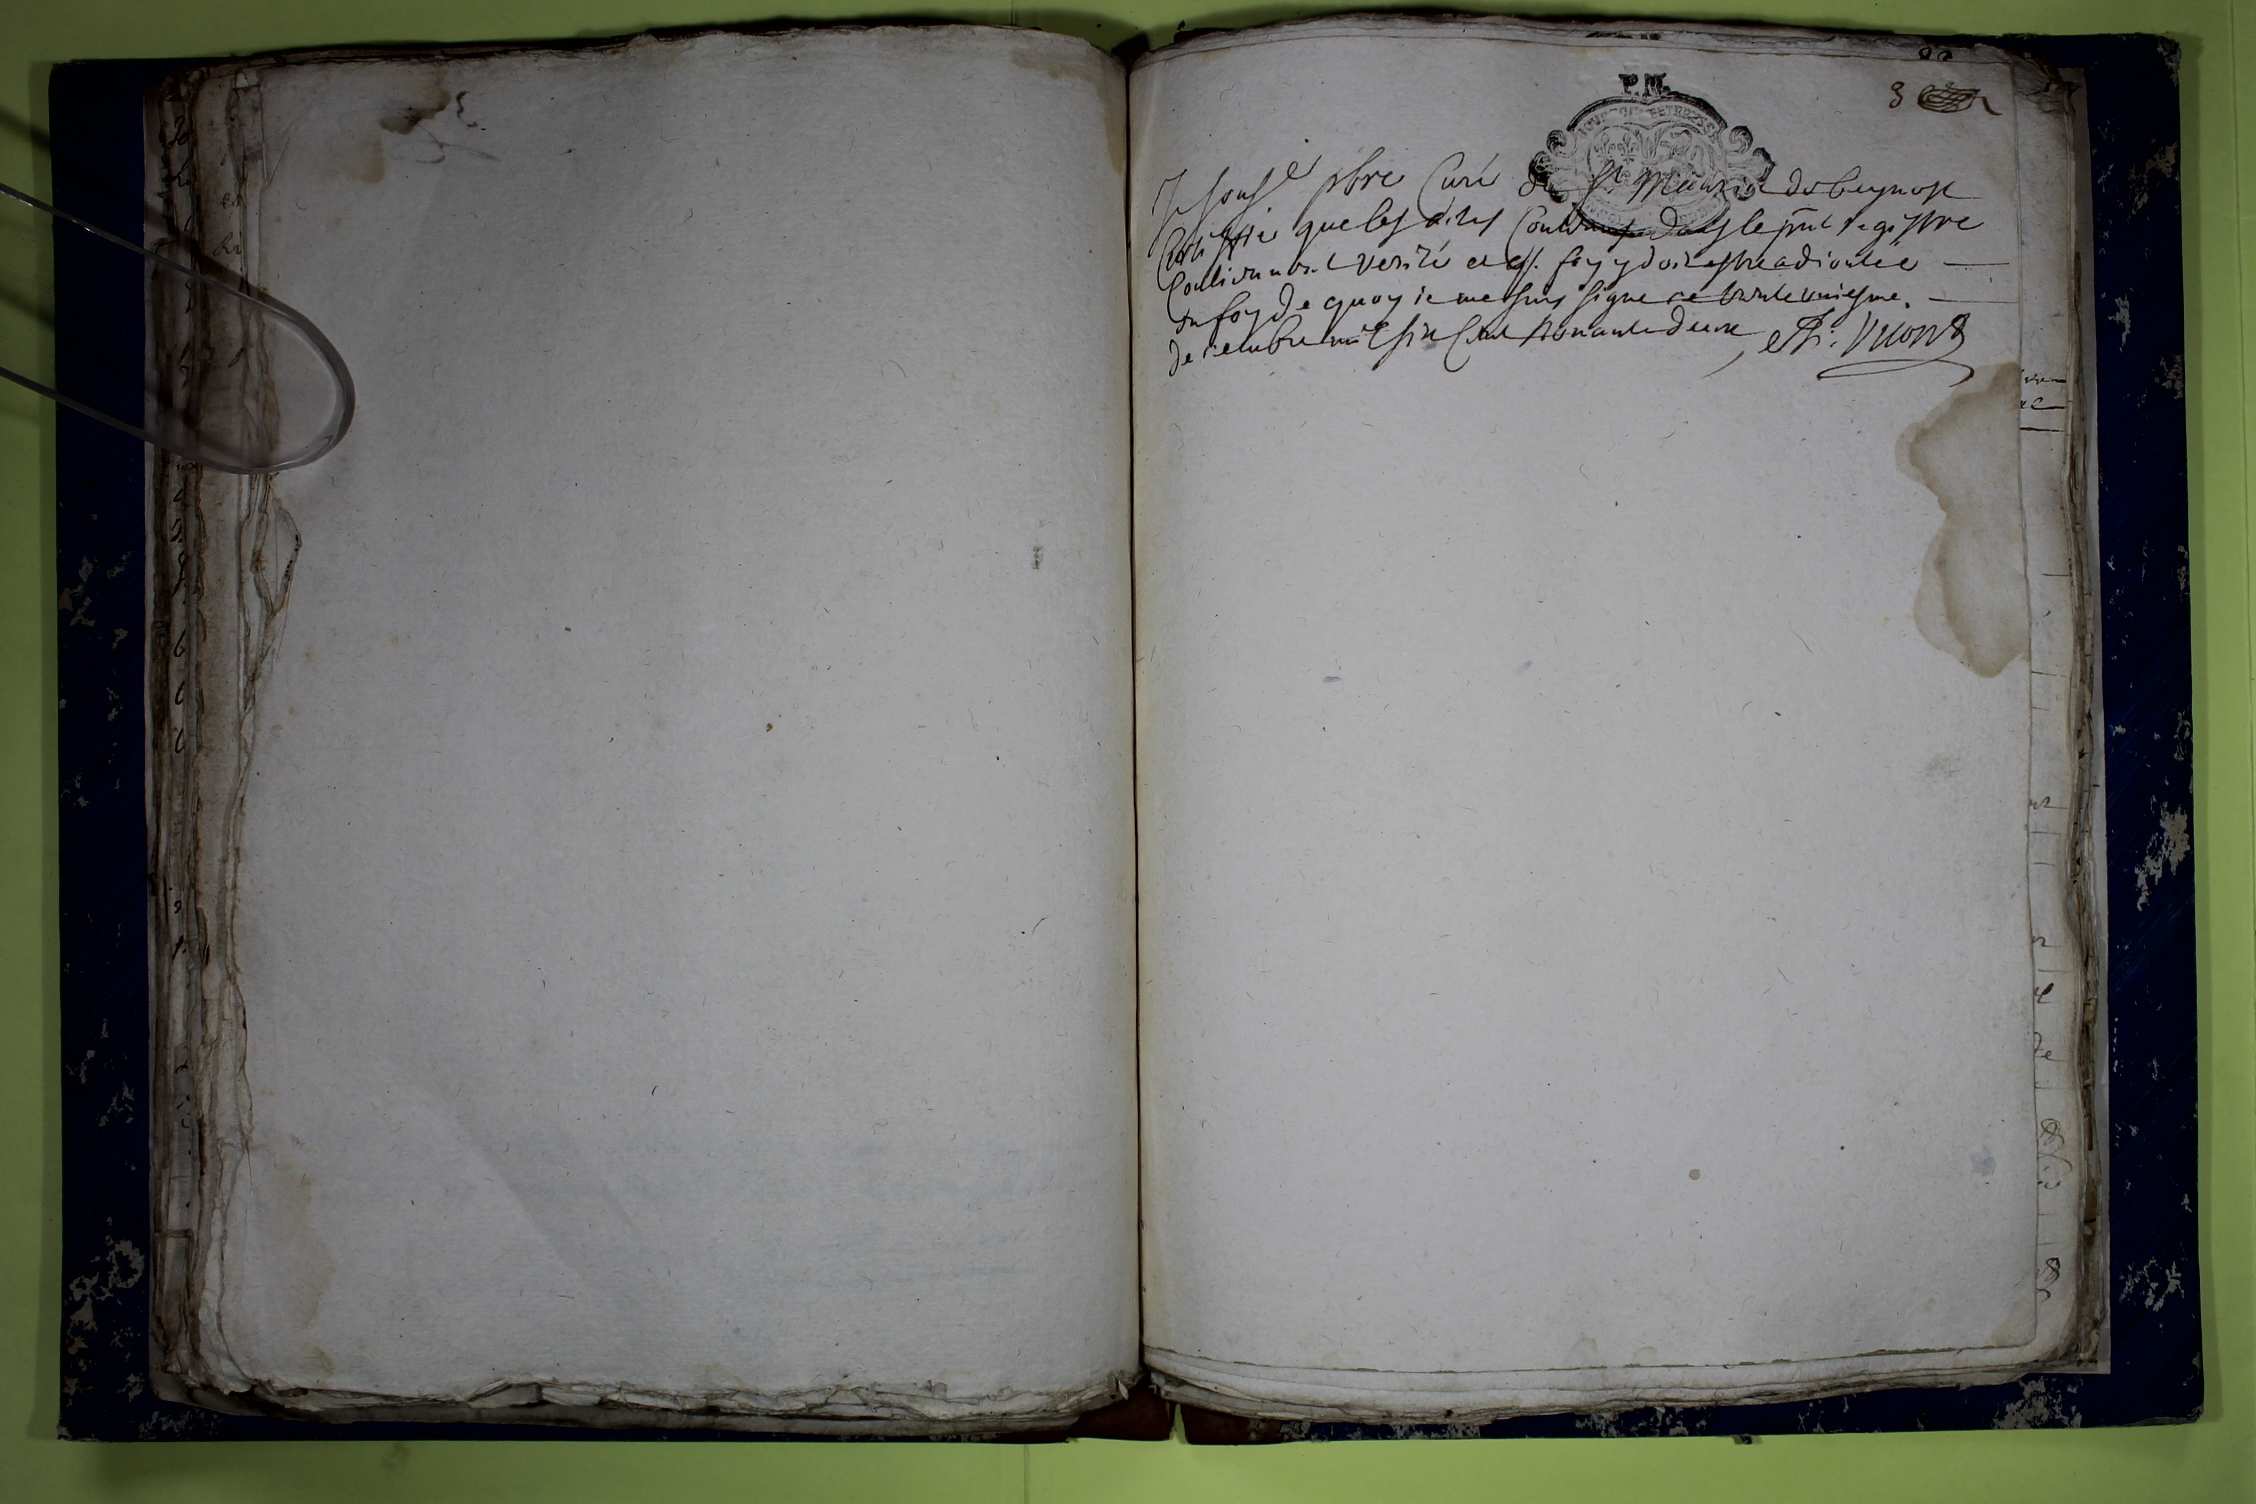 P. M.
3
Je soubs.é pbre Curé de St Maurice de beynost
Certiffie que les actes Contenus dans le pnt registre
Contiennent verité et q. foy y doit estre adioutée
en foy de quoy ie me suis signe ce trente uniesme
decembre mil six Cent nonante deux